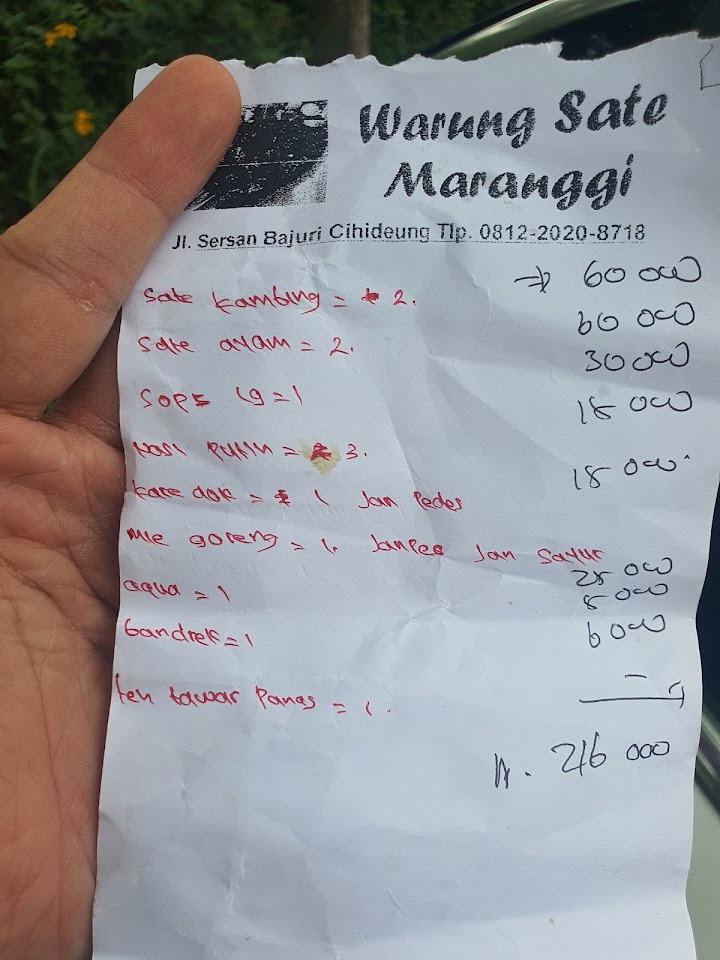 Warung Sate
Maranggi
Jl. Sersan Bajuri Cihideung Tlp. 0812-2020-8718
Sate kambing = 2. => 60 000
Sate ayam = 2. 60 000
Sop ig = 1 30 000
nasi putih = 3. 18 000
kare dok = 1 Jan Pedes 18 000
mie goreng = 1. Janpes Jan Sayur
aqua = 1 8 000
bandrek = 1 6 000
teh tawar Panas = 1. -
216 000